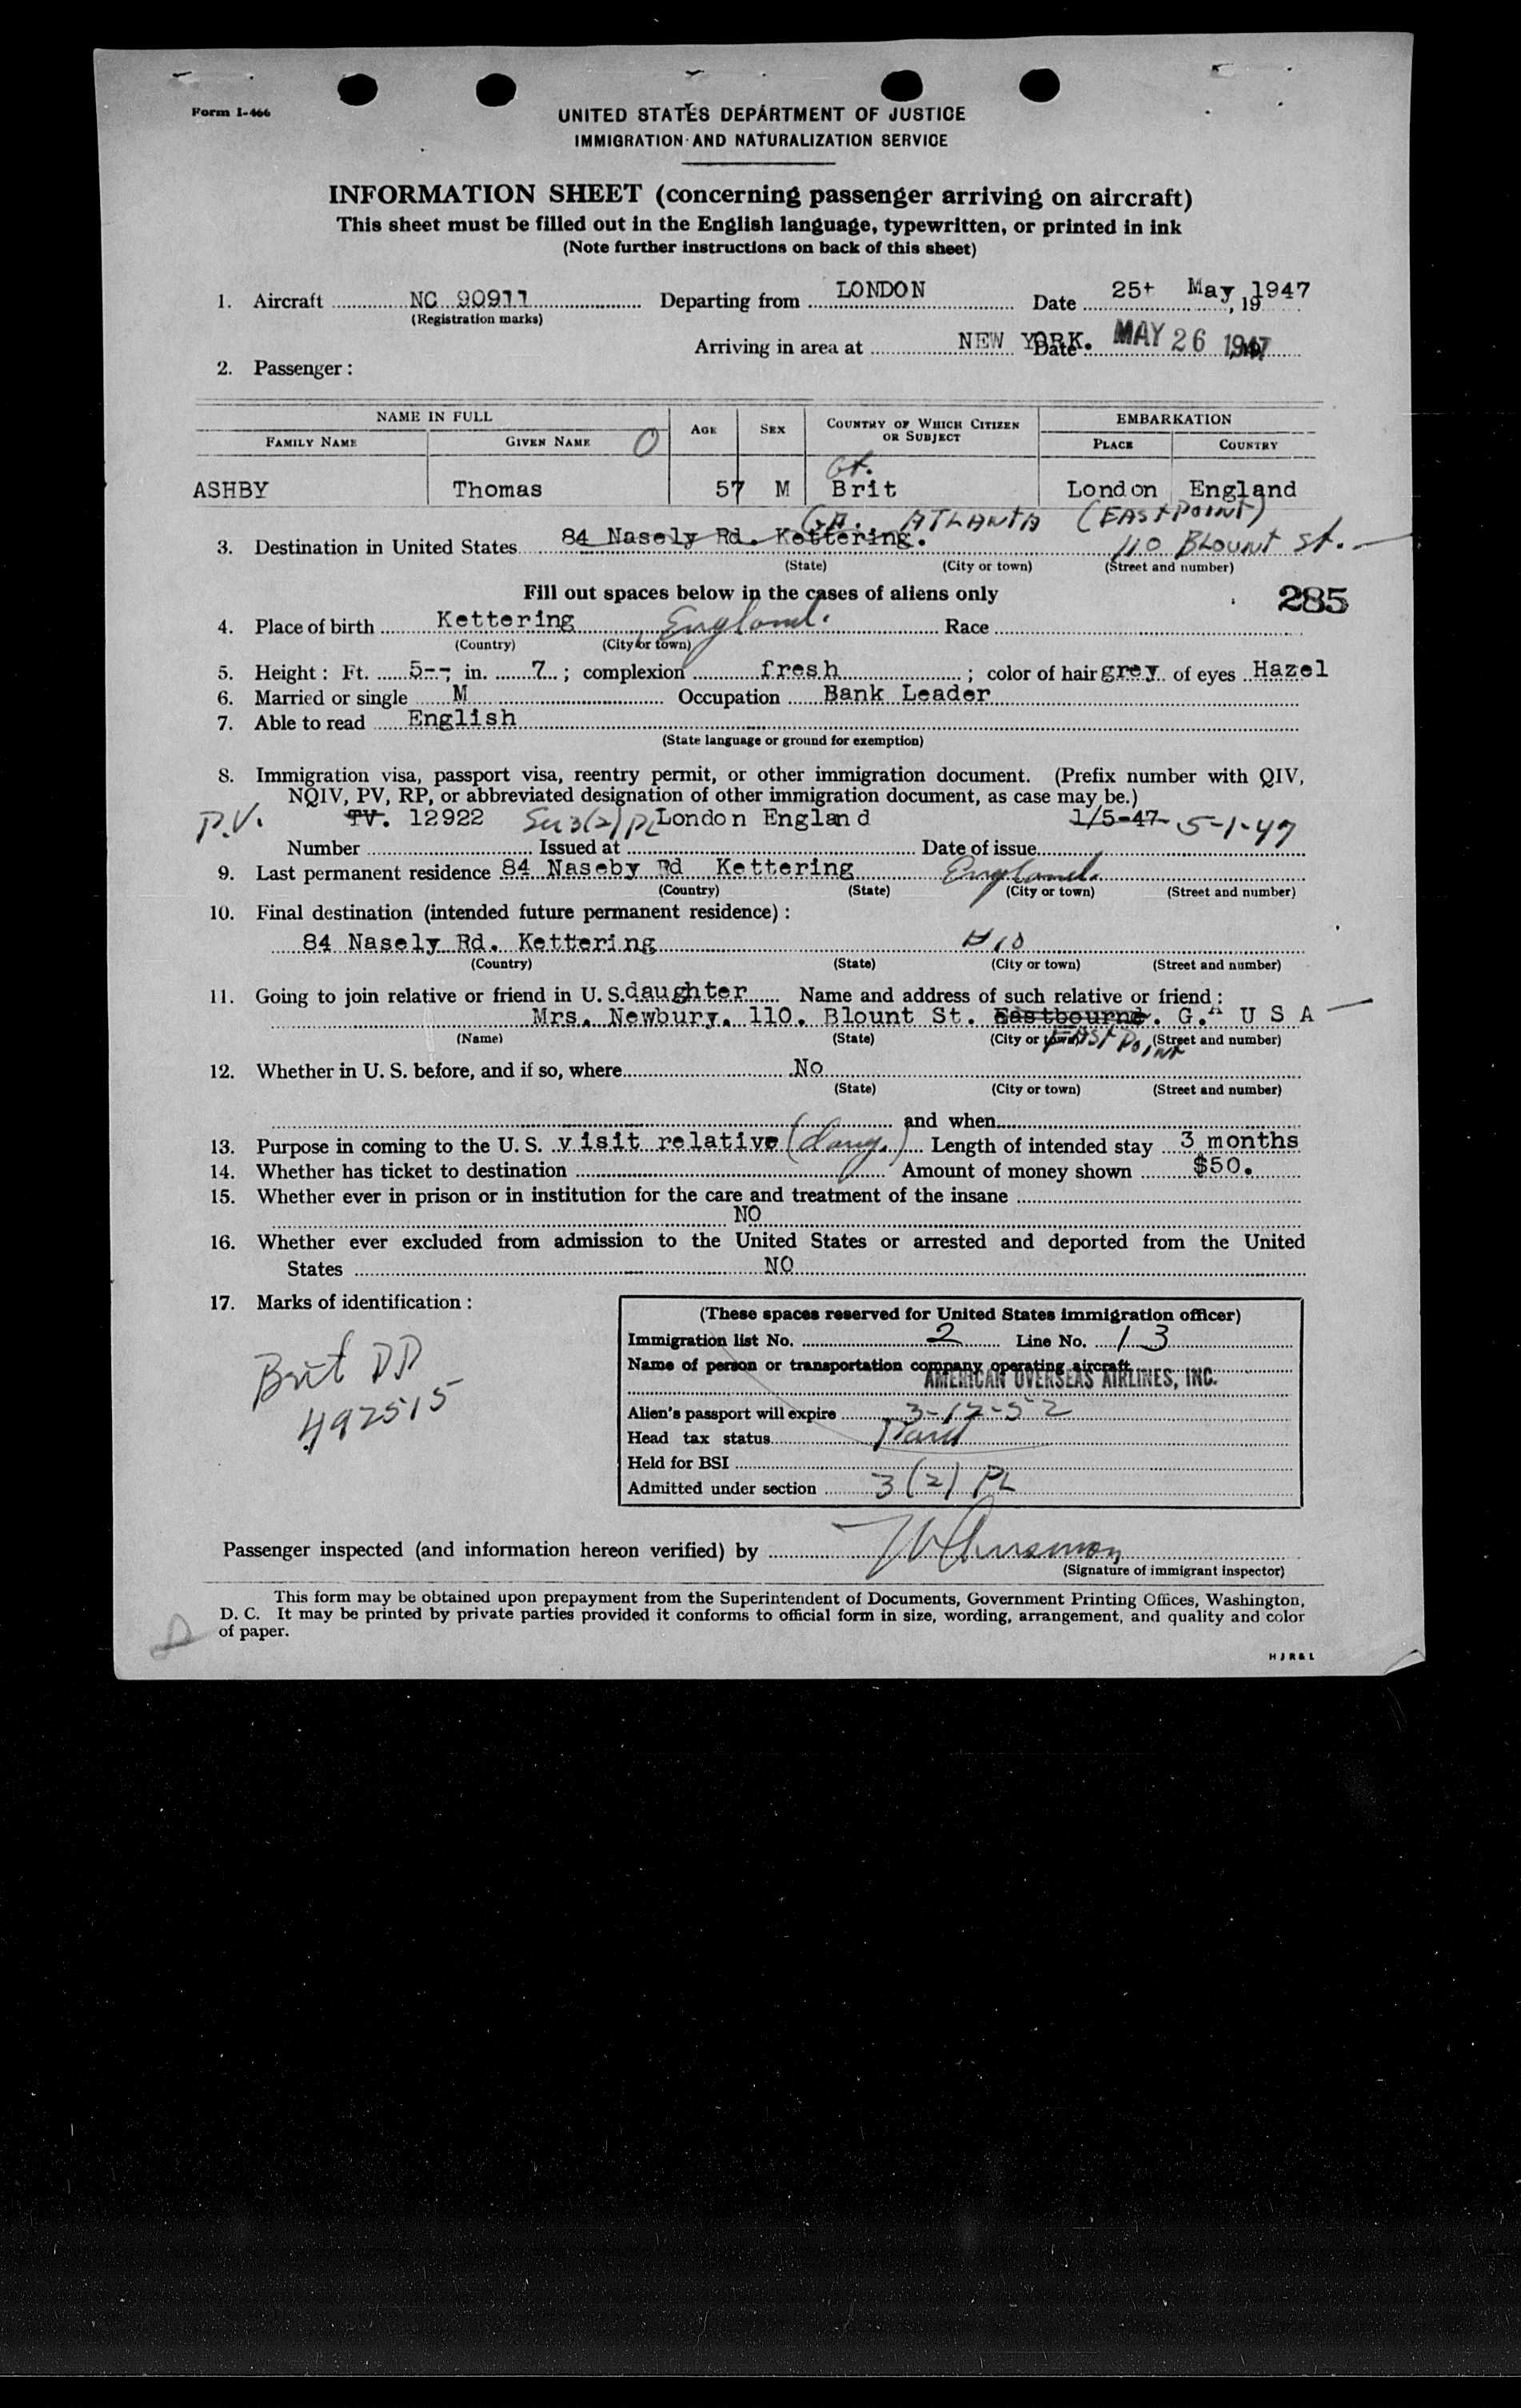 Form I-466
UNITED STATES DEPARTMENT OF JUSTICE
IMMIGRATION AND NATURALIZATION SERVICE
INFORMATION SHEET (concerning passenger arriving on aircraft)
This sheet must be filled out in the English language, typewritten, or printed in ink
(Note further instructions on back of this sheet)
1. Aircraft NC 90911 Departing from LONDON Date 25+ May, 1947
(Registration marks)
Arriving in area at NEW YORK. Date MAY 26 1947
2. Passenger:
NAME IN FULL AGE SEX COUNTRY OF WHICH CITIZEN OR SUBJECT EMBARKATION
FAMILY NAME GIVEN NAME O PLACE COUNTRY
Gt.
ASHBY Thomas 57 M Brit London England
GA. ATLANTA (EASTPOINT)
3. Destination in United States 84 Nasely Rd. Kettering. 110 BLOUNT St.
(State) (City or town) (Street and number)
Fill out spaces below in the cases of aliens only 285
4. Place of birth Kettering England. Race
(Country) (City or town)
5. Height: Ft. 5--; in. 7; complexion fresh; color of hair grey of eyes Hazel
6. Married or single M Occupation Bank Leader
7. Able to read English
(State language or ground for exemption)
8. Immigration visa, passport visa, reentry permit, or other immigration document. (Prefix number with QIV,
NQIV, PV, RP, or abbreviated designation of other immigration document, as case may be.)
P.V. TV. 12922 3(2) PL London England 1/5-47 5-1-47
Number Issued at Date of issue
9. Last permanent residence 84 Naseby Rd Kettering England.
(Country) (State) (City or town) (Street and number)
10. Final destination (intended future permanent residence):
84 Nasely Rd. Kettering
(Country) (State) (City or town) (Street and number)
11. Going to join relative or friend in U. S. daughter Name and address of such relative or friend:
Mrs. Newbury. 110. Blount St. Eastbourne. G.A U S A
(Name) (State) (City or town) EAST POINT (Street and number)
12. Whether in U. S. before, and if so, where No
(State) (City or town) (Street and number)
and when
13. Purpose in coming to the U. S. visit relative (daug.) Length of intended stay 3 months
14. Whether has ticket to destination Amount of money shown $50.
15. Whether ever in prison or in institution for the care and treatment of the insane
NO
16. Whether ever excluded from admission to the United States or arrested and deported from the United
States NO
17. Marks of identification:
Brit PP
492515
(These spaces reserved for United States immigration officer)
Immigration list No. 2 Line No. 13
Name of person or transportation company operating aircraft
AMERICAN OVERSEAS AIRLINES, INC.
Alien's passport will expire 3-17-52
Head tax status
Held for BSI
Admitted under section 3(2) PL
Passenger inspected (and information hereon verified) by
(Signature of immigrant inspector)
This form may be obtained upon prepayment from the Superintendent of Documents, Government Printing Offices, Washington,
D. C. It may be printed by private parties provided it conforms to official form in size, wording, arrangement, and quality and color
of paper.
H J R & L